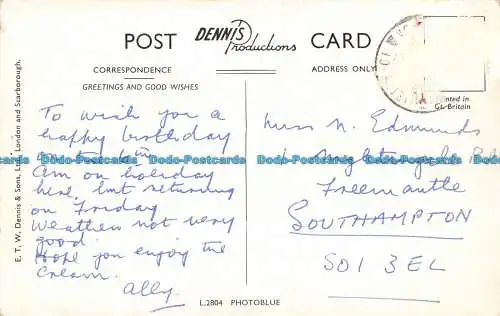 POST DENNIS Productions CARD
CORRESPONDENCE
ADDRESS ONLY
GREETINGS AND GOOD WISHES
Printed in
Gt. Britain
E. T. W. Dennis & Sons, Ltd., London and Scarborough.
To wish you a
happy birthday
Am on holiday
here, but returning
on Friday
Weather not very
good.
Hope you enjoy the
cream.
Ally.
Miss N. Edmunds
Nightingale
Freemantle
SOUTHAMPTON
SO1 3EL
Dodo-Postcards Dodo-Postcards Dodo-Postcards Dodo-Postcards
L.2804 PHOTOBLUE